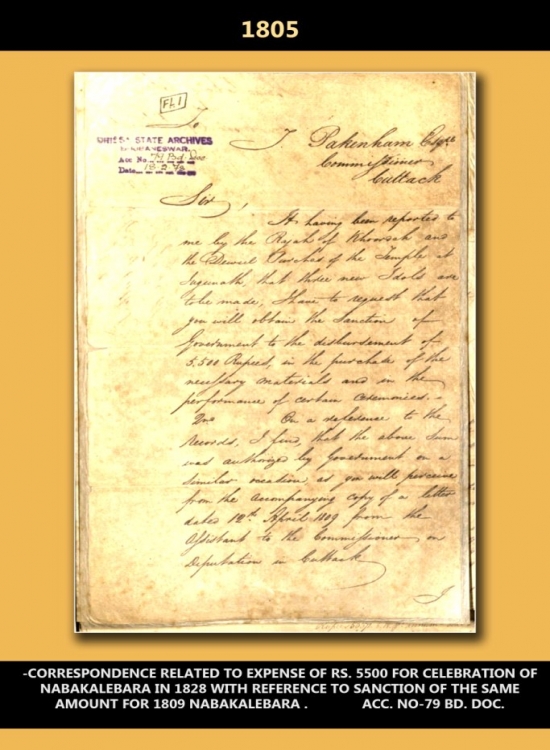 1805
FL1
To
ORISSA STATE ARCHIVES
BHUBANESWAR.
Acc No. 79 Bd. Doc
Date
T. Pakenham Esqre
Commissioner
Cuttack
Sir,
It having been reported to
me by the Rajah of Khoordah and
the Dewul Purchas of the Temple at
Jugernath that three new Idols are
to be made, I have to request that
you will obtain the Sanction of
Government to the disbursement of
5,500 Rupees, in the purchase of the
necessary materials and in the
performance of certain Ceremonies.
2nd On a reference to the
records, I find, that the above Sum
was authorized by Government on a
similar occasion as you will perceive
from the accompanying copy of a letter
dated 12th April 1809 from the
Assistant to the Commissioner on
Deputation in Cuttack
I
-CORRESPONDENCE RELATED TO EXPENSE OF RS. 5500 FOR CELEBRATION OF
NABAKALEBARA IN 1828 WITH REFERENCE TO SANCTION OF THE SAME
AMOUNT FOR 1809 NABAKALEBARA . ACC. NO-79 BD. DOC.